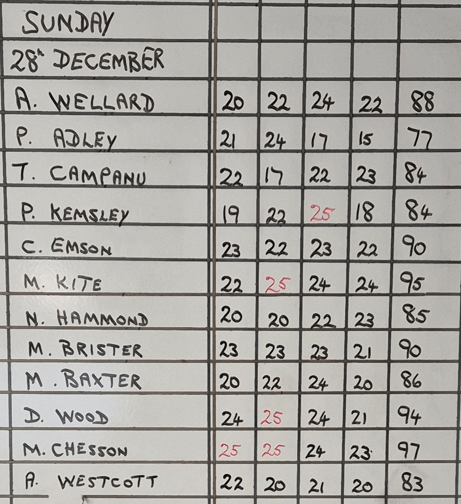 SUNDAY
28th DECEMBER
A. WELLARD 20 22 24 22 88
P. ADLEY 21 24 17 15 77
T. CAMPANU 22 17 22 23 84
P. KEMSLEY 19 22 25 18 84
C. EMSON 23 22 23 22 90
M. KITE 22 25 24 24 95
N. HAMMOND 20 20 22 23 85
M. BRISTER 23 23 23 21 90
M. BAXTER 20 22 24 20 86
D. WOOD 24 25 24 21 94
M. CHESSON 25 25 24 23 97
A. WESTCOTT 22 20 21 20 83